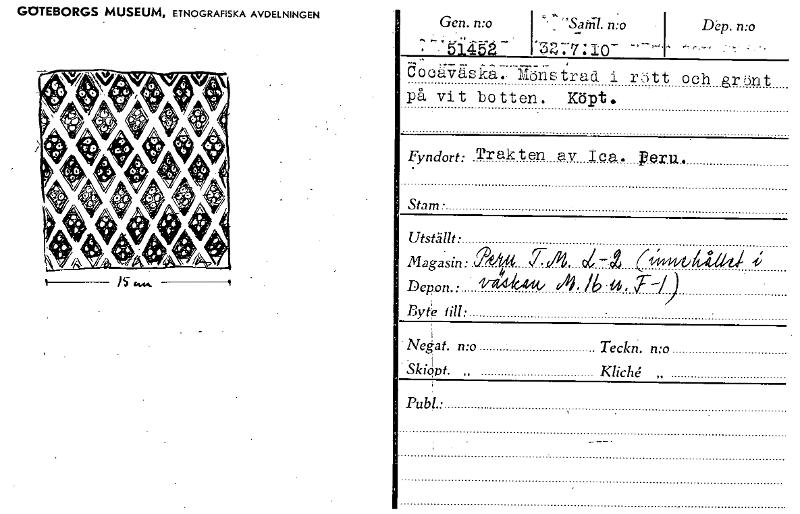 GÖTEBORGS MUSEUM, ETNOGRAFISKA AVDELNINGEN
Gen. n:o Saml. n:o Dep. n:o
51452 32.7.10
Cocaväska. Mönstrad i rött och grönt
på vit botten. Köpt.
Fyndort: Trakten av Ica. Peru.
Stam:
Utställt:
Magasin: Peru T.M. L-2 (innehållet i
Depon.: väskan M.16 u. F-1)
Byte till:
Negat. n:o Teckn. n:o
Skiopt. „ Kliché „
Publ.:
15 cm